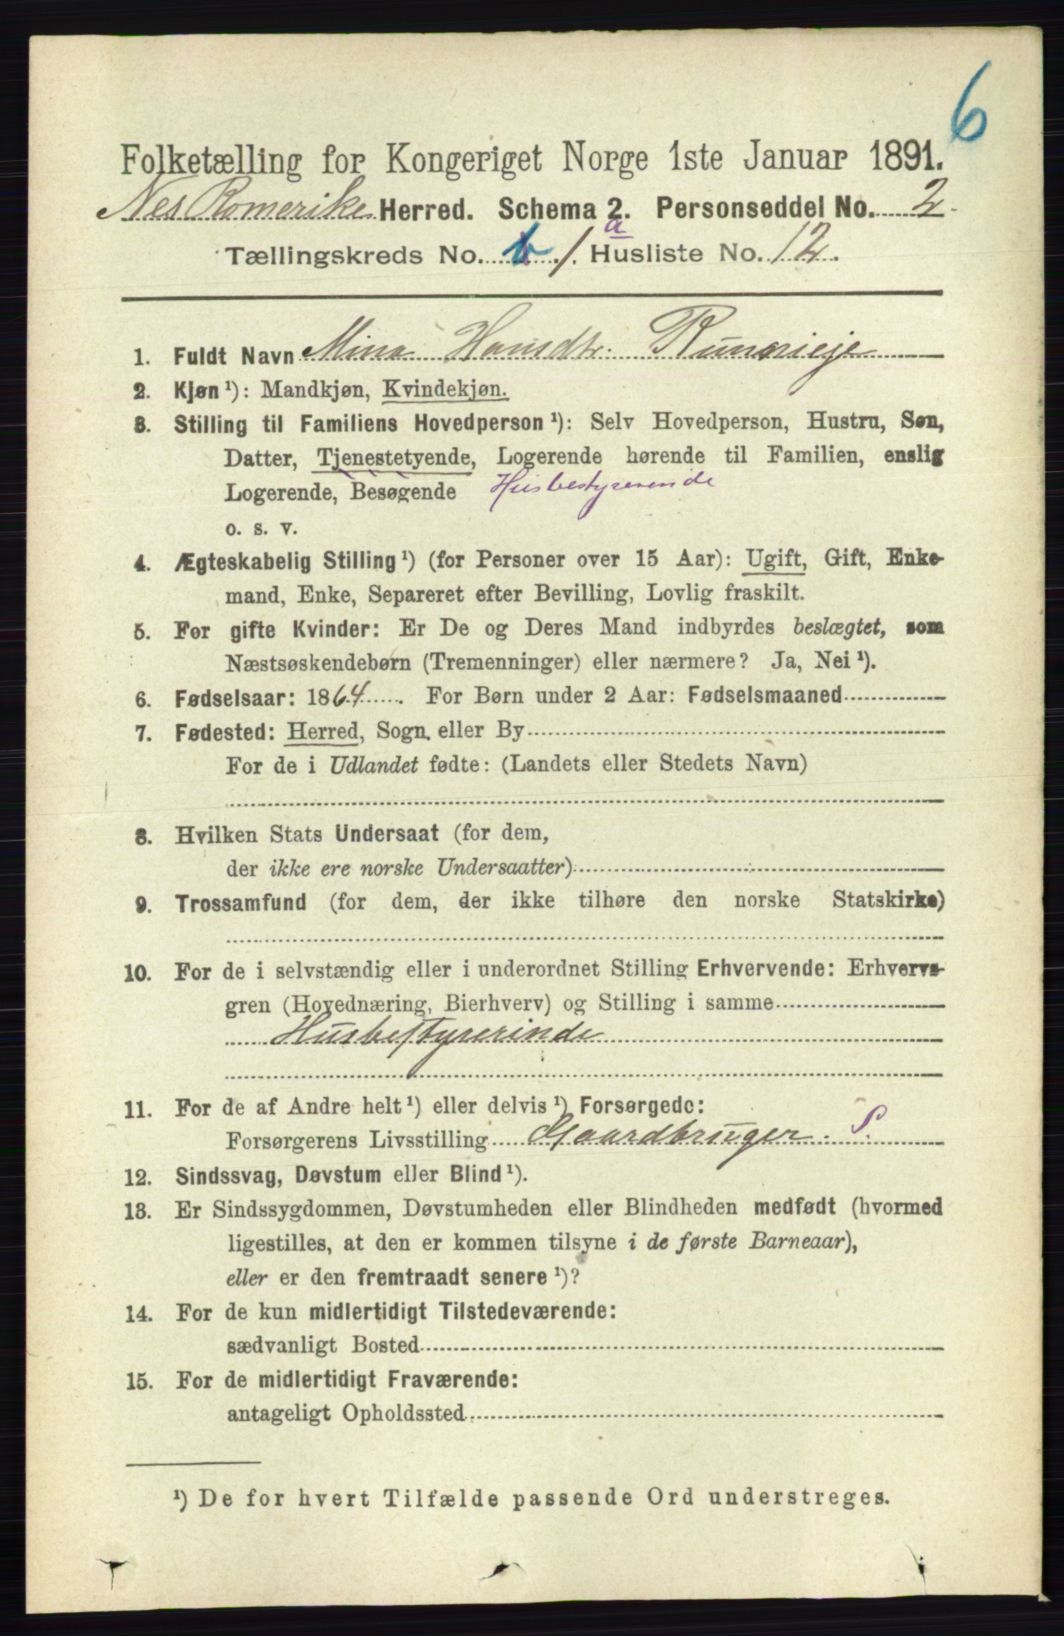 6
Folketælling for Kongeriget Norge 1ste Januar 1891.
Nes Romerike Herred. Schema 2. Personseddel No. 2.
Tællingskreds No. b /. a Husliste No. 12.
1. Fuldt Navn Mina Hansdtr.
2. Kjøn ¹): Mandkjøn, Kvindekjøn.
3. Stilling til Familiens Hovedperson ¹): Selv Hovedperson, Hustru, Søn,
Datter, Tjenestetyende, Logerende hørende til Familien, enslig
Logerende, Besøgende Husbestyrerinde
o. s. v.
4. Ægteskabelig Stilling ¹) (for Personer over 15 Aar): Ugift, Gift, Enke-
mand, Enke, Separeret efter Bevilling, Lovlig fraskilt.
5. For gifte Kvinder: Er De og Deres Mand indbyrdes beslægtet, som
Næstsøskendebørn (Tremenninger) eller nærmere? Ja, Nei ¹).
6. Fødselsaar: 1864. For Børn under 2 Aar: Fødselsmaaned
7. Fødested: Herred, Sogn, eller By
For de i Udlandet fødte: (Landets eller Stedets Navn)
8. Hvilken Stats Undersaat (for dem,
der ikke ere norske Undersaatter)
9. Trossamfund (for dem, der ikke tilhøre den norske Statskirke)
10. For de i selvstændig eller i underordnet Stilling Erhvervende: Erhvervs-
gren (Hovednæring, Bierhverv) og Stilling i samme
Husbestyrerinde
11. For de af Andre helt ¹) eller delvis ¹) Forsørgede:
Forsørgerens Livsstilling Gaardbruger. S.
12. Sindssvag, Døvstum eller Blind ¹).
13. Er Sindssygdommen, Døvstumheden eller Blindheden medfødt (hvormed
ligestilles, at den er kommen tilsyne i de første Barneaar),
eller er den fremtraadt senere ¹)?
14. For de kun midlertidigt Tilstedeværende:
sædvanligt Bosted
15. For de midlertidigt Fraværende:
antageligt Opholdssted
¹) De for hvert Tilfælde passende Ord understreges.